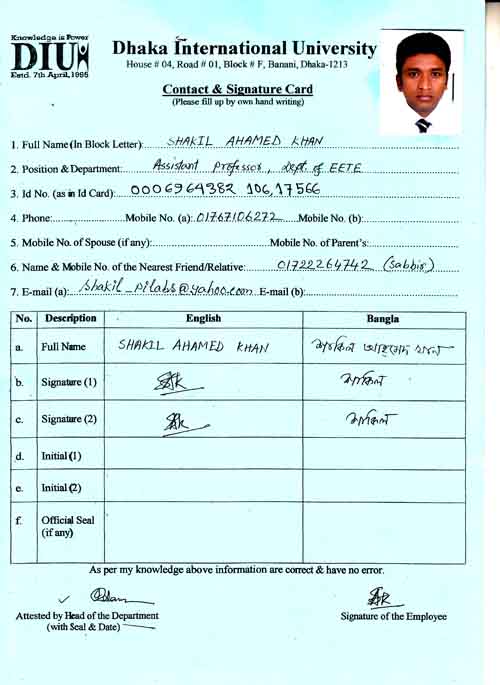 Knowledge is Power
DIU
Estd. 7th April, 1995
Dhaka International University
House # 04, Road # 01, Block # F, Banani, Dhaka-1213
Contact & Signature Card
(Please fill up by own hand writing)
1. Full Name (In Block Letter): SHAKIL AHAMED KHAN
2. Position & Department: Assistant Professor, Dept. of EETE
3. Id No. (as in Id Card): 0006964382 106,17566
4. Phone: Mobile No. (a): 01767106272 Mobile No. (b):
5. Mobile No. of Spouse (if any): Mobile No. of Parent's:
6. Name & Mobile No. of the Nearest Friend/Relative: 01722264742 (Sabbir)
7. E-mail (a): shakil_pilabs@yahoo.com E-mail (b):
No. Description English Bangla
a. Full Name SHAKIL AHAMED KHAN শাকিল আহমেদ খান
b. Signature (1) শাকিল
c. Signature (2) শাকিল
d. Initial (1)
e. Initial (2)
f. Official Seal
(if any)
As per my knowledge above information are correct & have no error.
Attested by Head of the Department Signature of the Employee
(with Seal & Date)